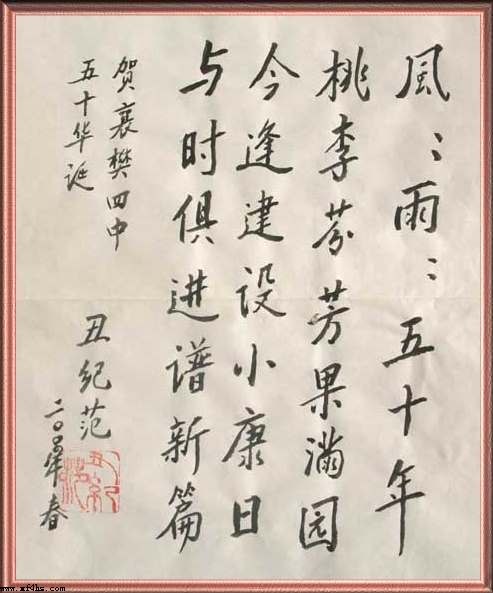 風〻雨〻五十年
桃李芬芳果满园
今逢建设小康日
与时俱进谱新篇
贺襄樊四中
五十华诞
丑纪范
二〇〇年春
www.xf4hs.com